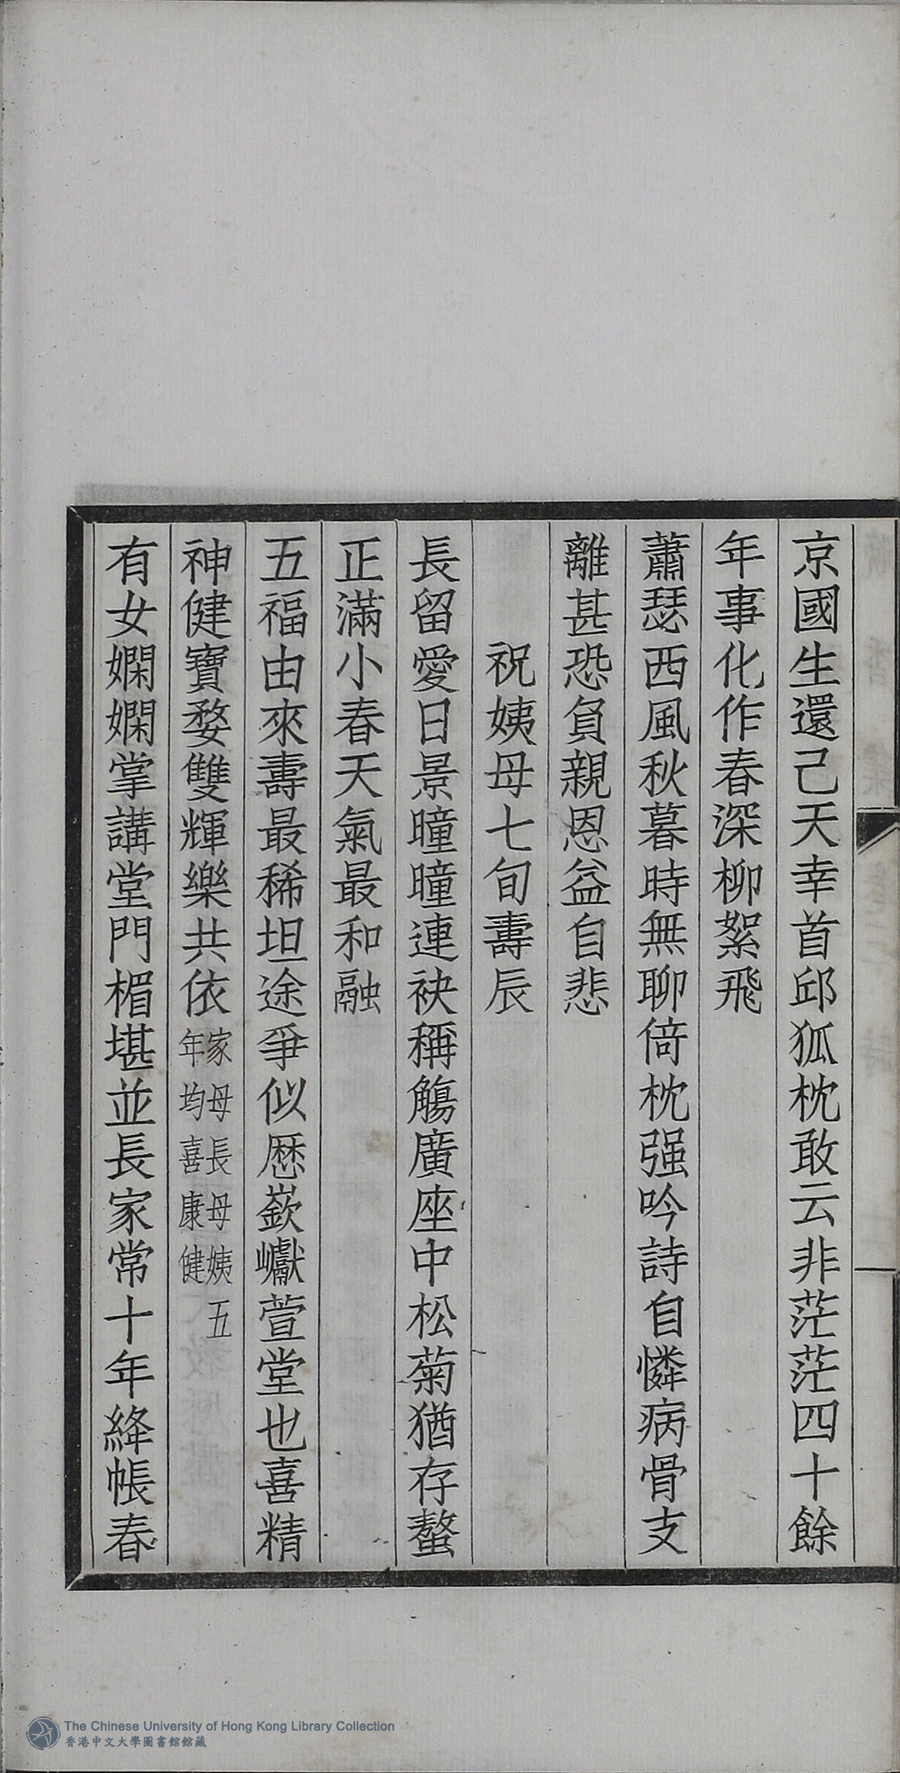 京國生還己天幸首邱狐枕敢云非茫茫四十餘
年事化作春深柳絮飛
蕭瑟西風秋暮時無聊倚枕强吟詩自憐病骨支
離甚恐負親恩益自悲
祝姨母七旬壽辰
長留愛日景曈曈連袂稱觴廣座中松菊猶存螯
正滿小春天氣最和融
五福由來壽最稀坦途爭似歷嶔巇萱堂也喜精
神健寶婺雙輝樂共依
家母長母姨五
年均喜康健
有女嫻嫻掌講堂門楣堪並長家常十年絳帳春
The Chinese University of Hong Kong Library Collection
香港中文大學圖書館館藏